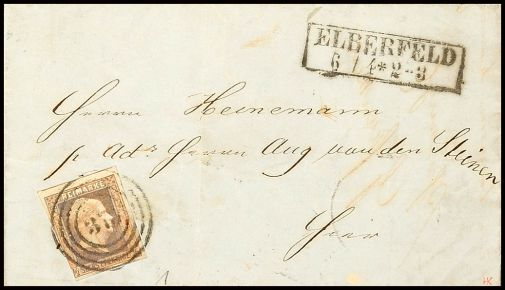 ELBERFELD
6 / 4 * 2-3
Herrn Heinemann
p. Adr. Herrn Aug van den Steinen
Hier
FREIMARKE
37